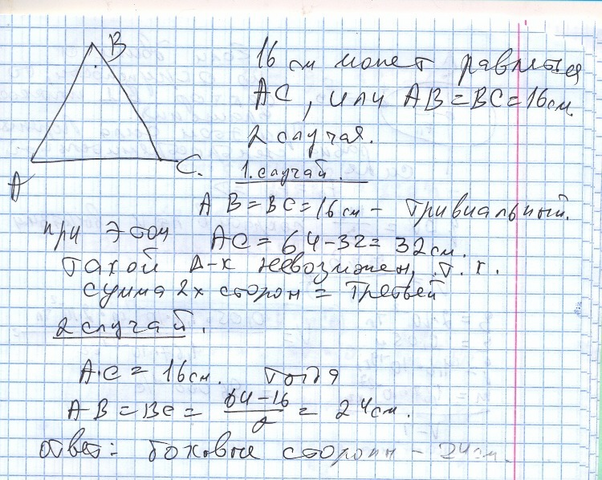 B
A
C.
16 см может равнятся
AC, или AB=BC=16см.
2 случая.
1. случай.
AB=BC=16см - тривиальный.
при этом AC=64-32=32см.
такой Δ-к невозможен, т.к.
сумма 2х сторон = третьей
2 случай.
AC=16см. Тогда
AB=BC= 64-16/2 = 24см.
ответ: боковые стороны - 24см.